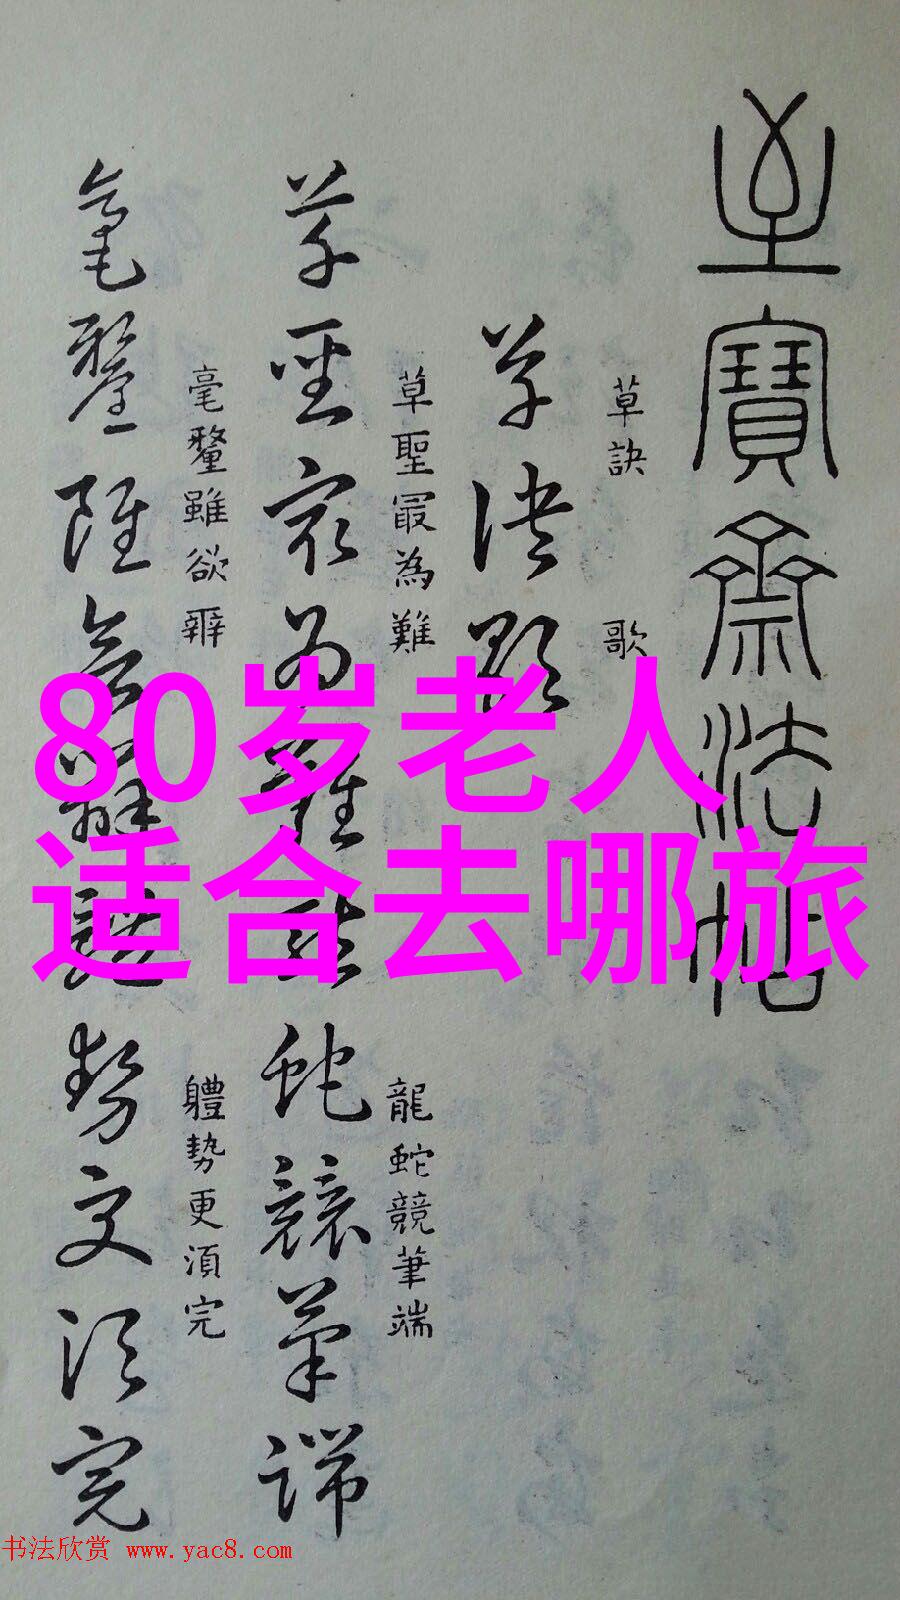 至寶齋法帖
草訣歌
草訣 歌
草聖最為難龍蛇競筆端
草聖最為難 龍蛇競筆端
毫釐雖欲辨體勢更須完
毫釐雖欲辧 軆勢更湏完
80岁老人
适合去哪旅
书法欣赏 www.yac8.com